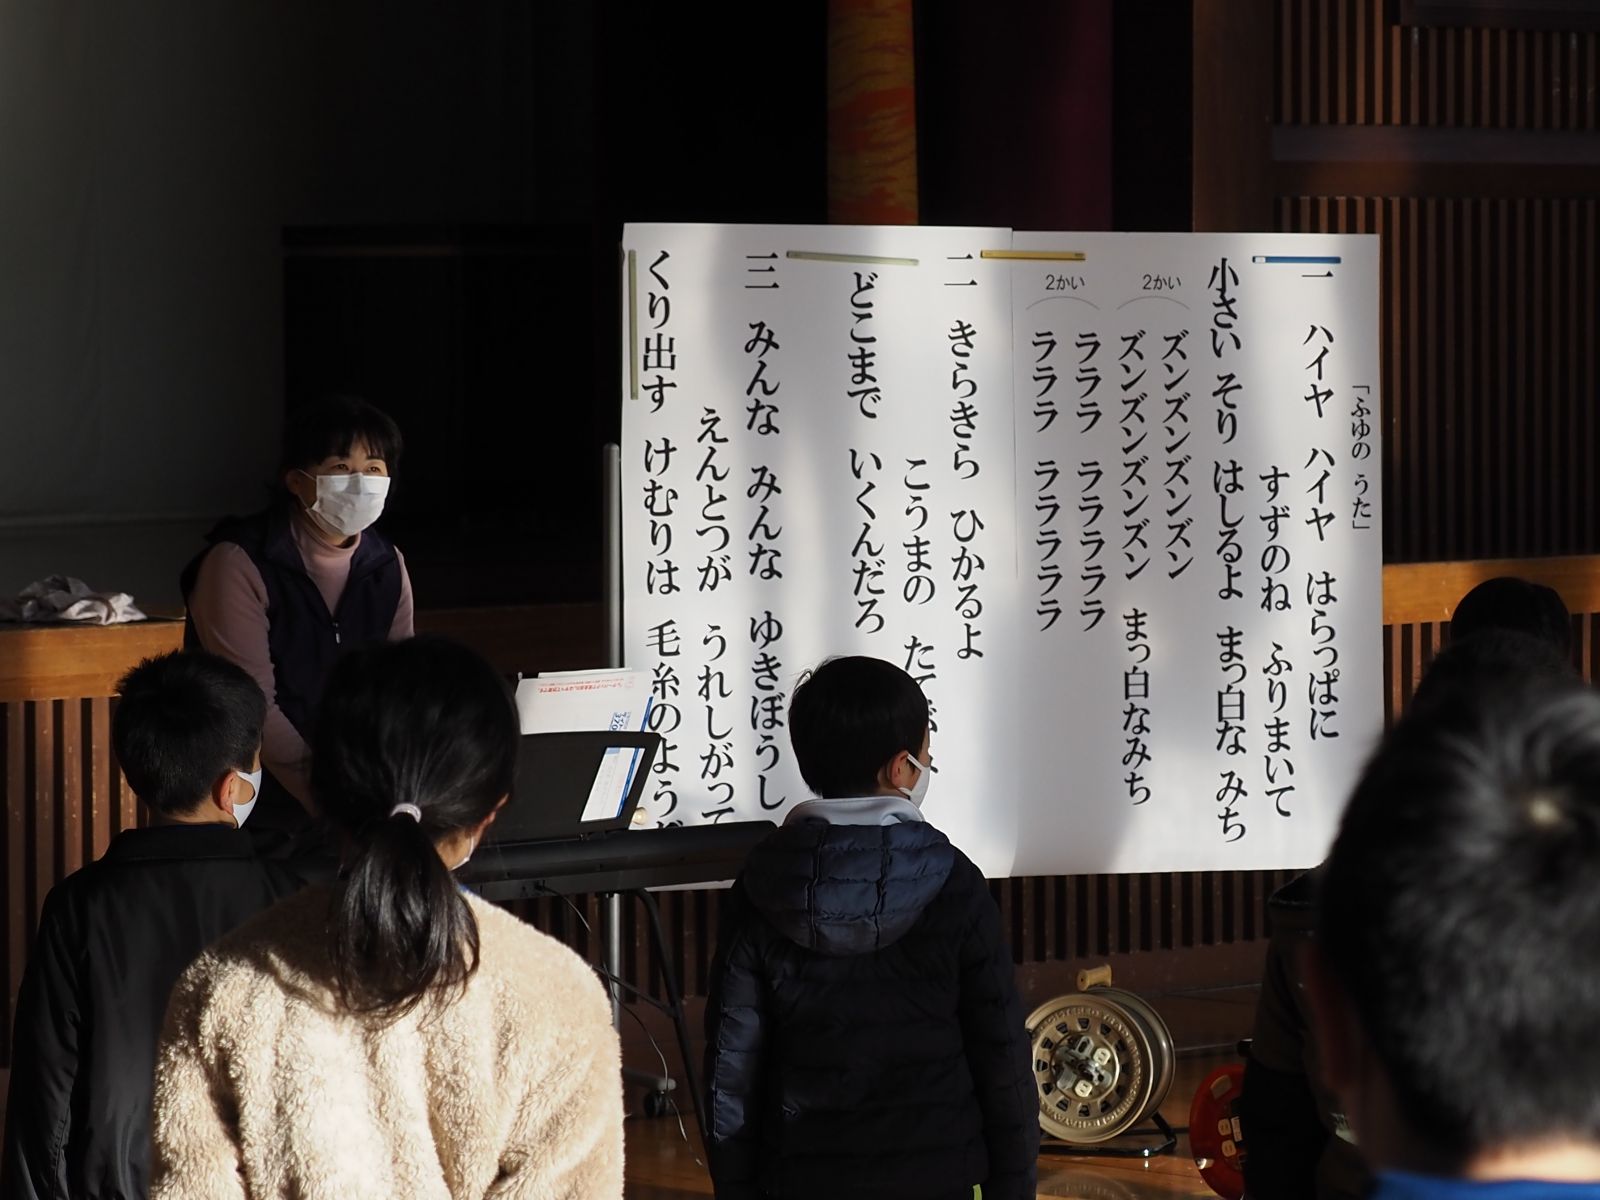 「ふゆの うた」
一 ハイヤ ハイヤ はらっぱに
すずのね ふりまいて
小さい そり はしるよ まっ白な みち
2かい
ズンズンズンズンズン
ズンズンズンズンズン まっ白なみち
2かい
ラララ ラララララ
ラララ ラララララ
二 きらきら ひかるよ
こうまの
どこまで いくんだろ
三 みんな みんな ゆきぼうし
えんとつが うれしがって
くり出す けむりは 毛糸のよう